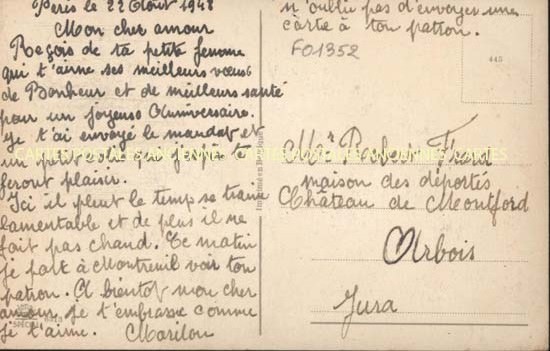 Paris le 22 Août 1948
Mon cher amour
Reçois de ta petite femme
qui t'aime ses meilleurs vœux
de Bonheur et de meilleurs santé
pour un joyeuse Anniversaire.
Je t'ai envoyé le mandat et
un petit colis que j'espère te
feront plaisir.
Ici il pleut le temps se traine
lamentable et de plus il ne
fait pas chaud. Ce matin
je part à Montreuil voir ton
patron. A bientôt mon cher
amour je t'embrasse comme
je t'aime. Marilou
n'oublie pas d'envoyer une
carte à ton patron.
FO1352
445
CARTES POSTALES ANCIENNES
CARTES POSTALES ANCIENNES
Mr Robert
maison des déportés
Château de Montford
Arbois
Jura
SPECIAL